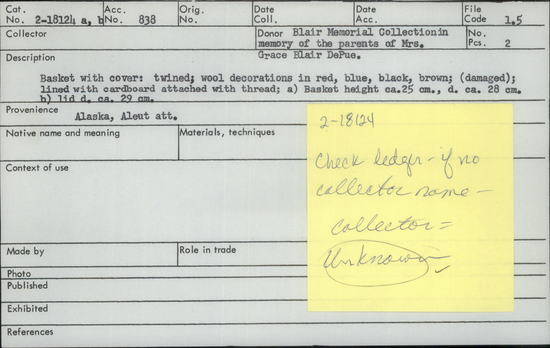 Cat. No. 2-18124 a, b Acc. No. 838 Orig. No. Date Coll. Date Acc. File Code 1.5
Collector Donor Blair Memorial Collectionin memory of the parents of Mrs. Grace Blair DePue. No. Pcs. 2
Description
Basket with cover: twined; wool decorations in red, blue, black, brown; (damaged);
lined with cardboard attached with thread; a) Basket height ca.25 cm., d. ca. 28 cm.
b) lid d. ca. 29 cm.
Provenience
Alaska, Aleut att.
Native name and meaning Materials, techniques
Context of use
Made by Role in trade
Photo
Published
Exhibited
References
2-18124
Check ledger - if no
collector name -
collector =
Unknown ✓